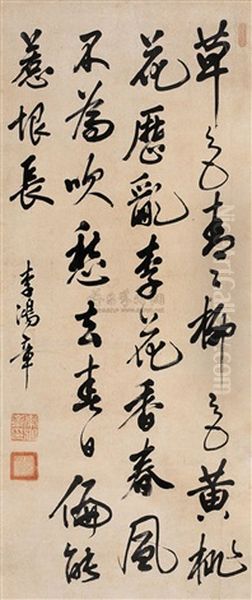 草色青々柳色黃桃
花歷亂李花香春風
不為吹愁去春日偏能
惹恨長
李鴻章